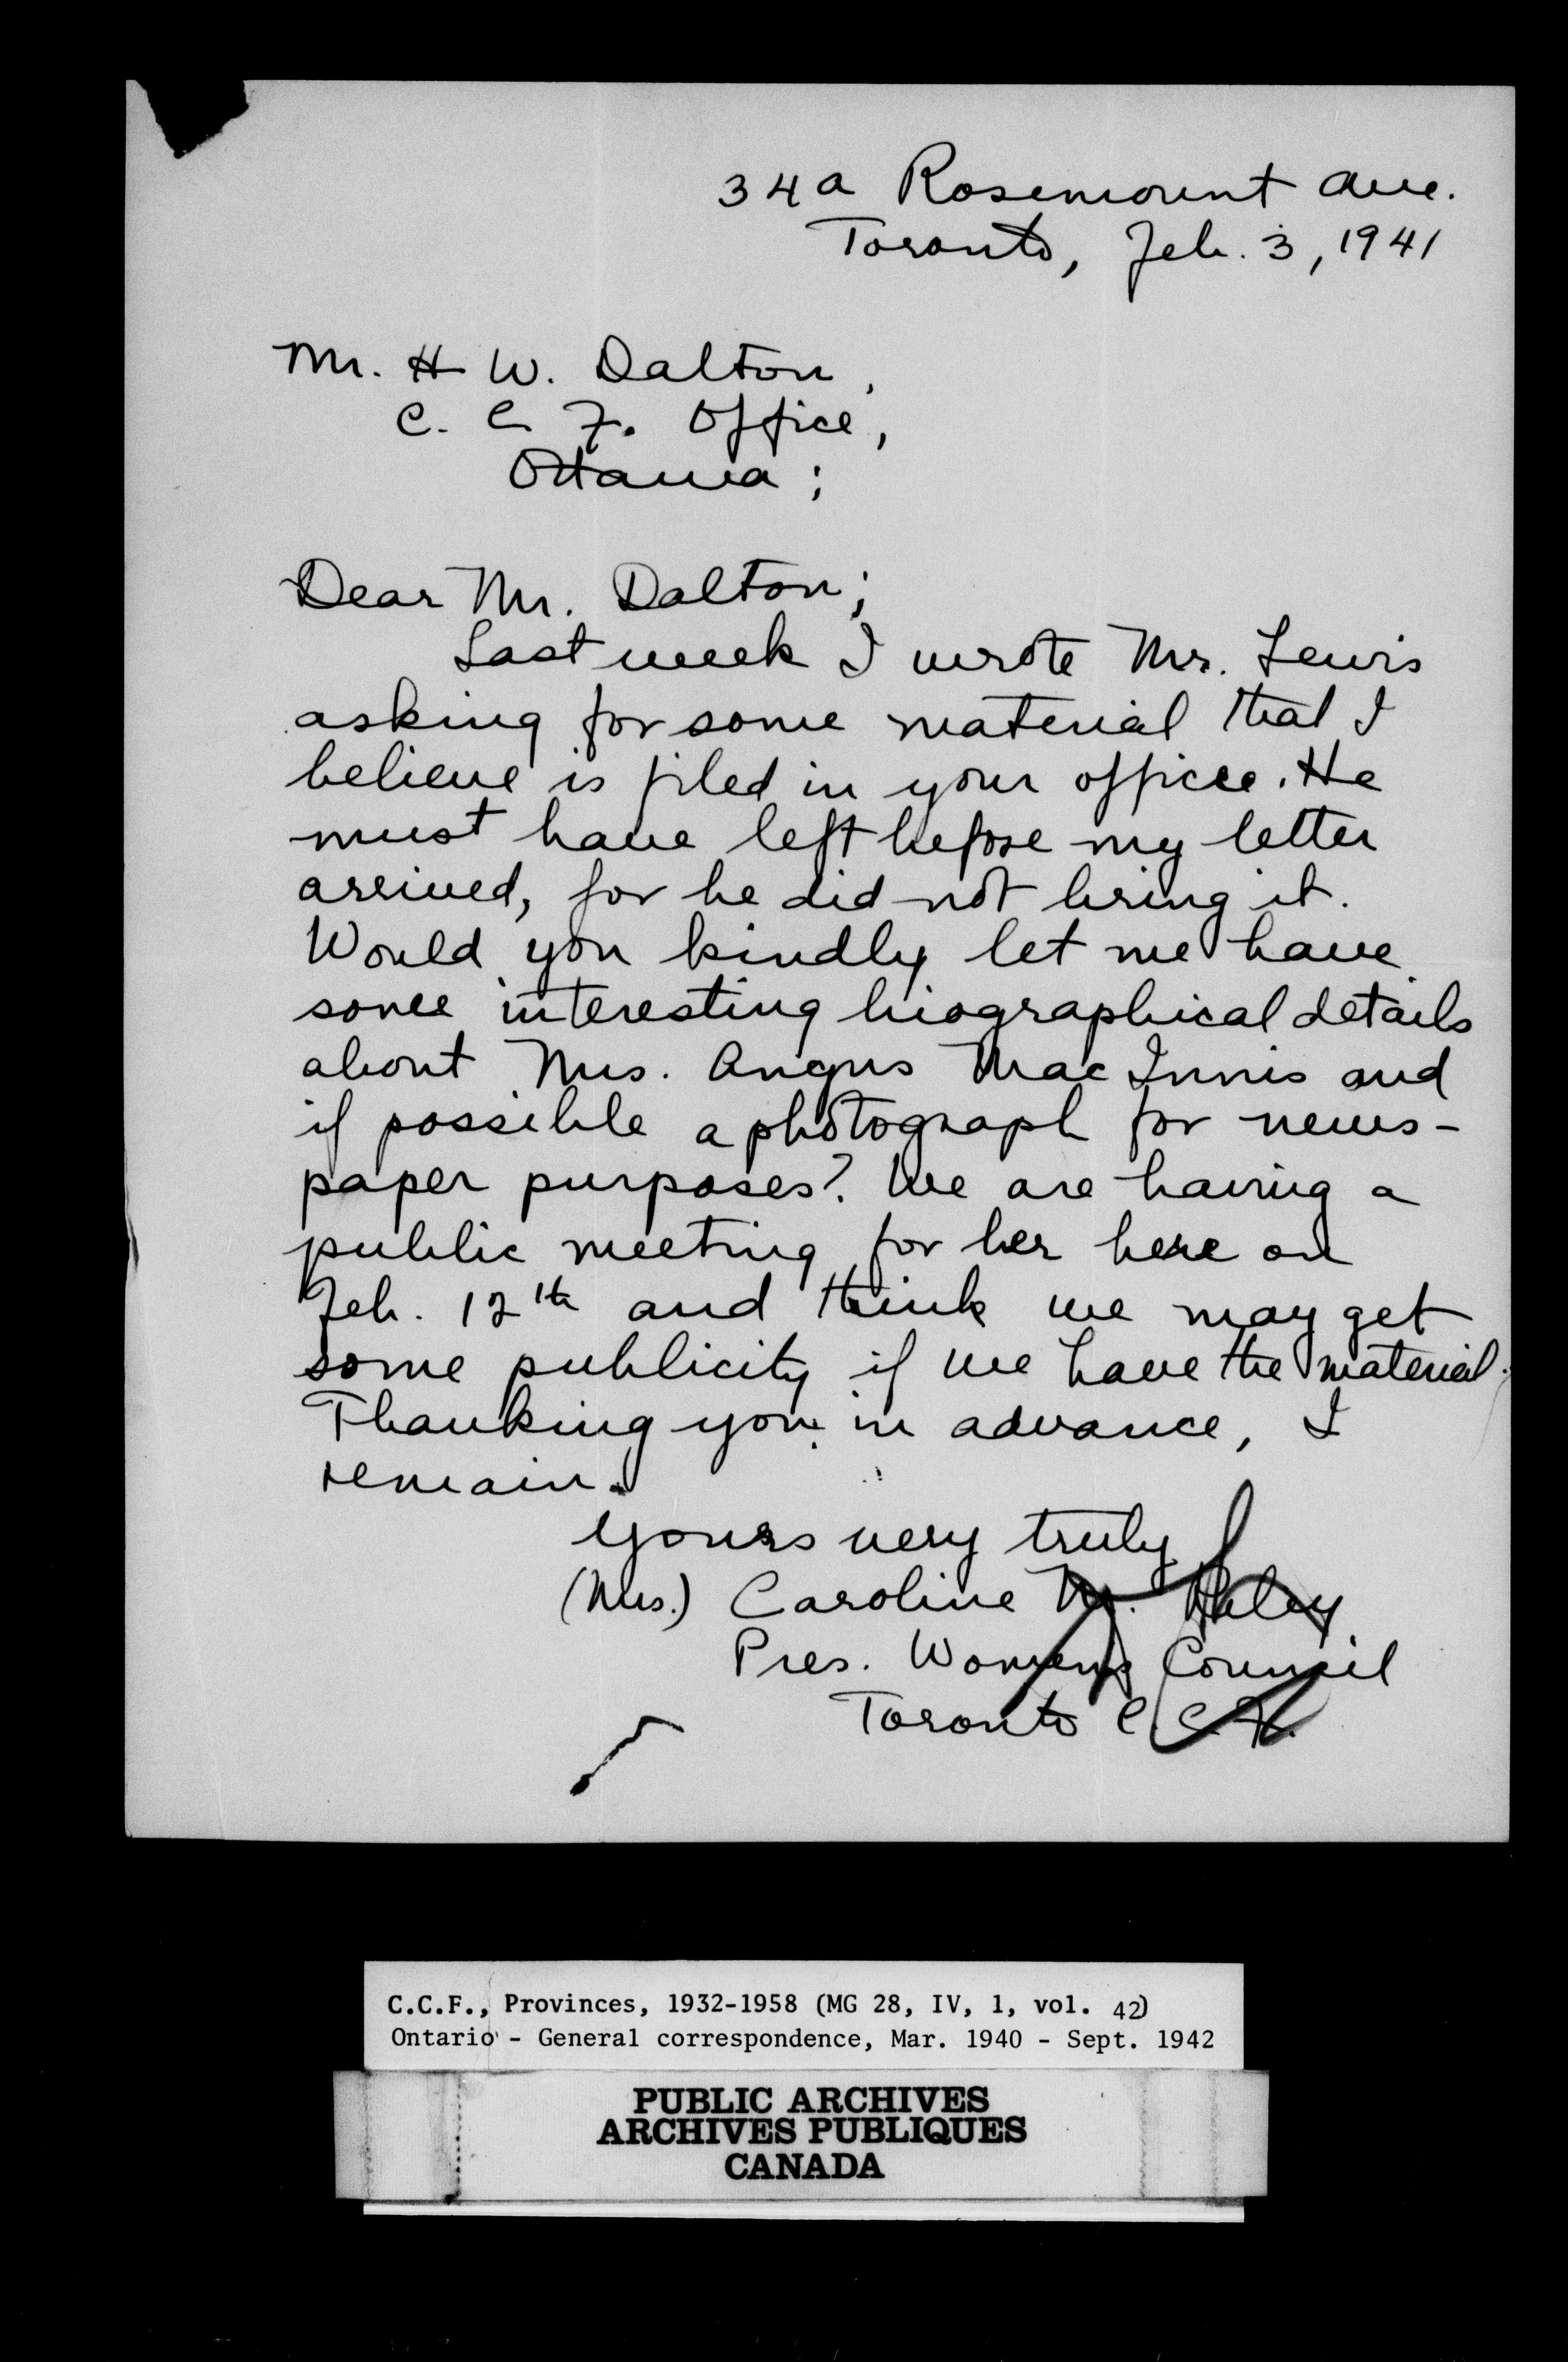 34a Rosemount Ave.
Toronto, Feb. 3, 1941
Mr. H W. Dalton,
C. C. F. Office,
Ottawa;
Dear Mr. Dalton;
Last week I wrote Mr. Lewis
asking for some material that I
believe is filed in your office. He
must have left before my letter
arrived, for he did not bring it.
Would you kindly let me have
some interesting biographical details
about Mrs. Angus MacInnis and
if possible a photograph for news-
paper purposes? We are having a
public meeting for her here on
Feb. 12th and think we may get
some publicity if we have the material.
Thanking you in advance, I
remain.
Yours very truly
(Mrs.) Caroline M. Riley
Pres. Womens Council
Toronto C.C.F.
C.C.F., Provinces, 1932-1958 (MG 28, IV, 1, vol. 42)
Ontario - General correspondence, Mar. 1940 - Sept. 1942
PUBLIC ARCHIVES
ARCHIVES PUBLIQUES
CANADA